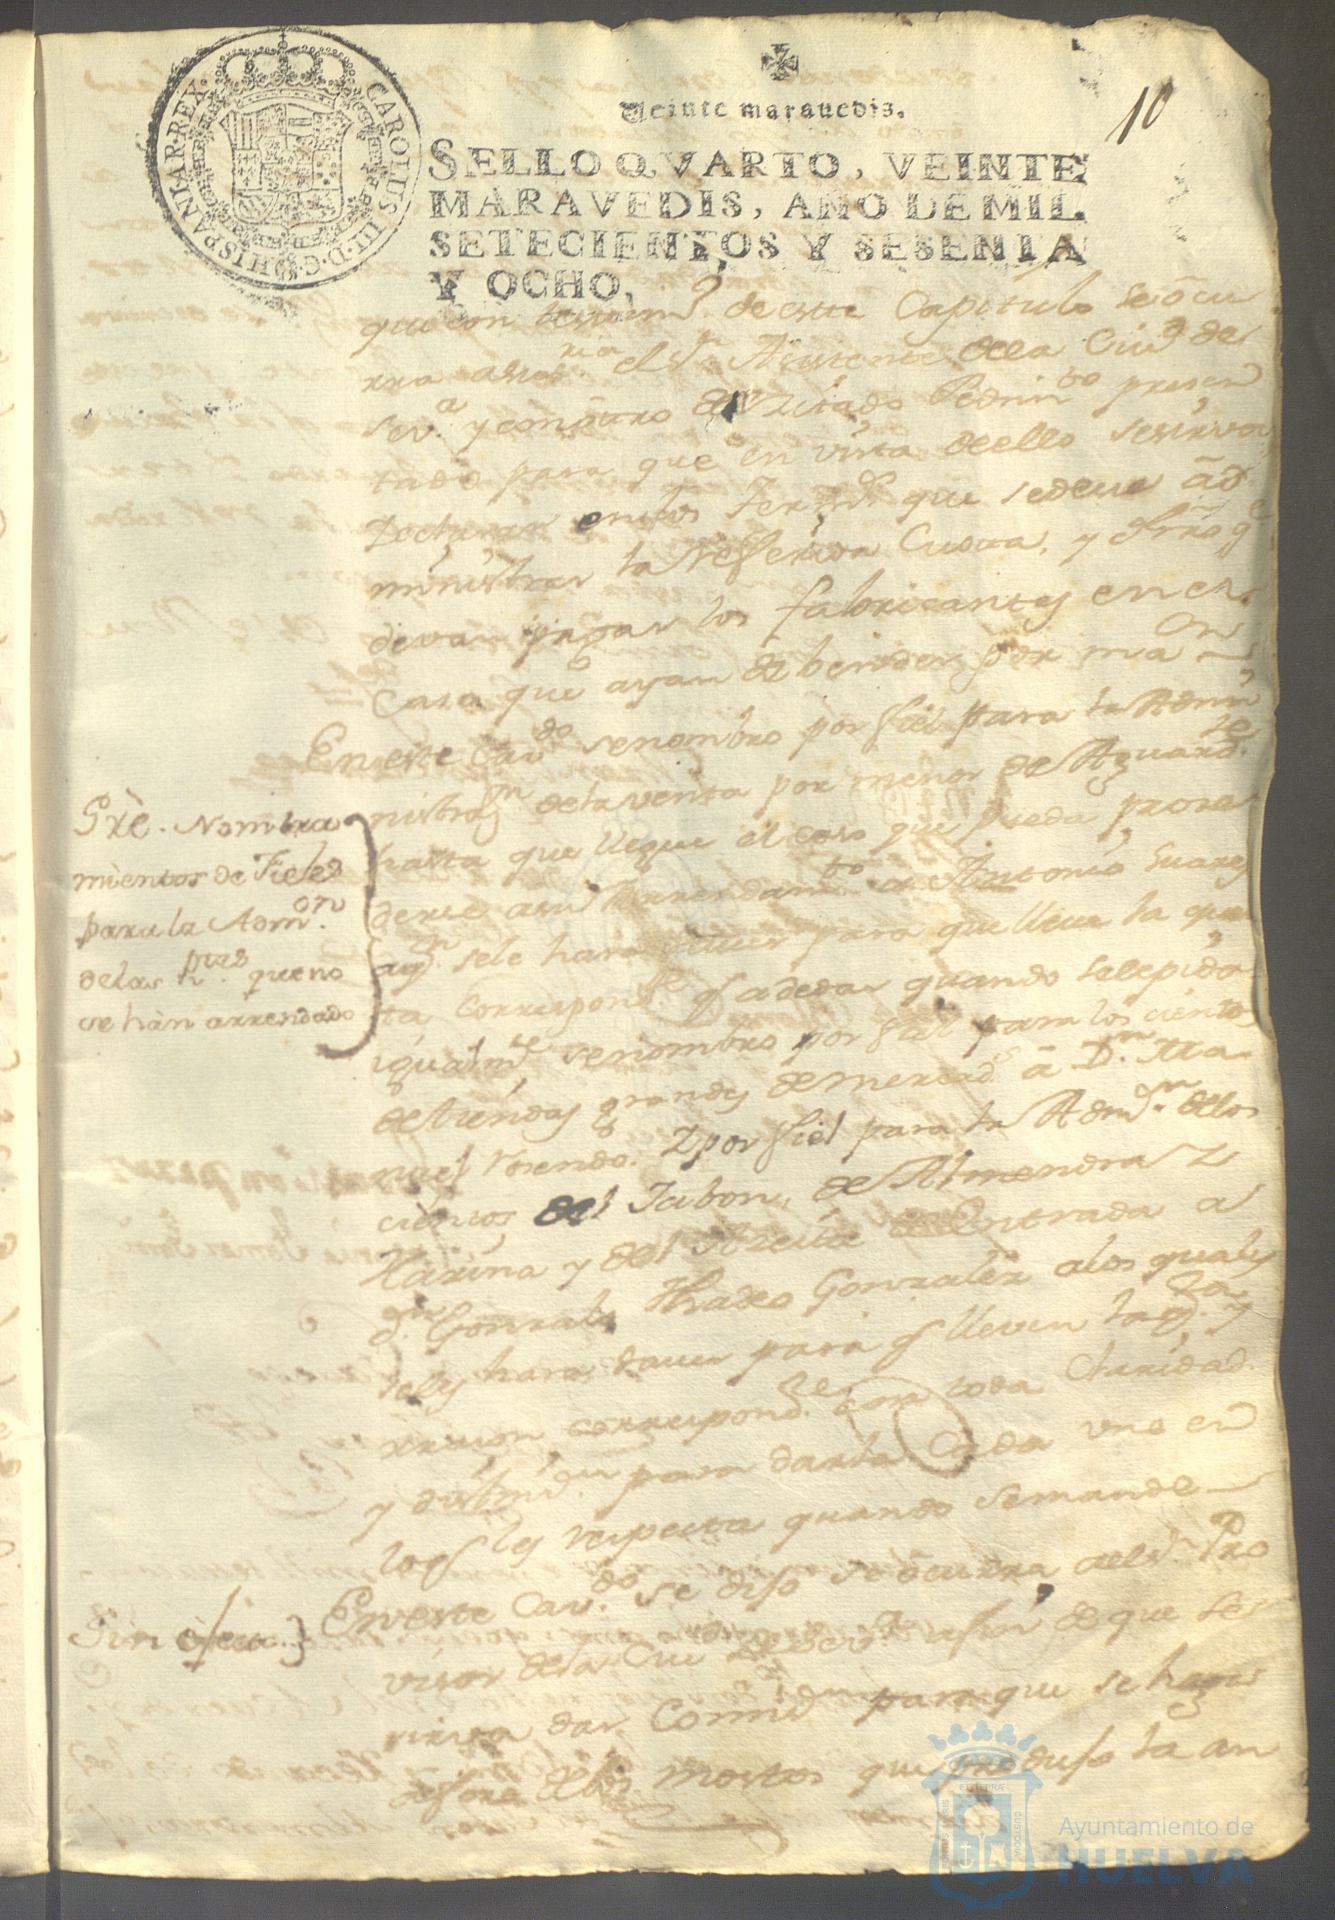 10
CAROLUS III D.G. HISPANIAR. REX.
Veinte marauedis.
SELLO QVARTO, VEINTE
MARAVEDIS, AÑO DE MIL
SETECIENTOS Y SESENTA
Y OCHO,
que con testim.º de este Capitulo se ocu
rra a el s.r Asistente dela Ciud de
Sev.a y
tado para que en vista de ello se sirva
que se deve ad
ministrar la Refferida Cuota, y
devan pagar los fabricantes en el
Caso que ayan de bender por ma.or
En este Cav.do se nombro por fiel para la Admi
nistraz.n dela venta por menor de Aguard.te
hasta que llegue el caso que pueda proze
derse a su Arrendam.to a Antonio Suares
aq.n se le hara saver para que lleve la quen
ta correspond.te q a de dar quando se le pida
igualm.te se nombro por fiel para los cientos
de tiendas grandes de mercad.s a D.n Ma
nuel Rosendo. Y por fiel para la Adm.on de los
cientos del Jabon, de Almendra
Harina y del Azeite de Entrada a
D.n Gonzalo Thadeo Gonzalez a los quales
se les hara saver para q lleven la q.ta y
razon correspond.te con toda Claridad
y para darla Cada uno en
lo q les respecta quando se mande
En este Cav.do se dijo se ocurra a el s.r Pro
visor de la Ciud de Sev.a a fin de que se
sirva dar Comis.n para que se haga
de los mostos que produjo la an
Gxe. Nombra
mientos de Fieles
para la Adm.on
de las r.tas que no
se hàn arrendado
Sin efecto
Ayuntamiento de
HUELVA